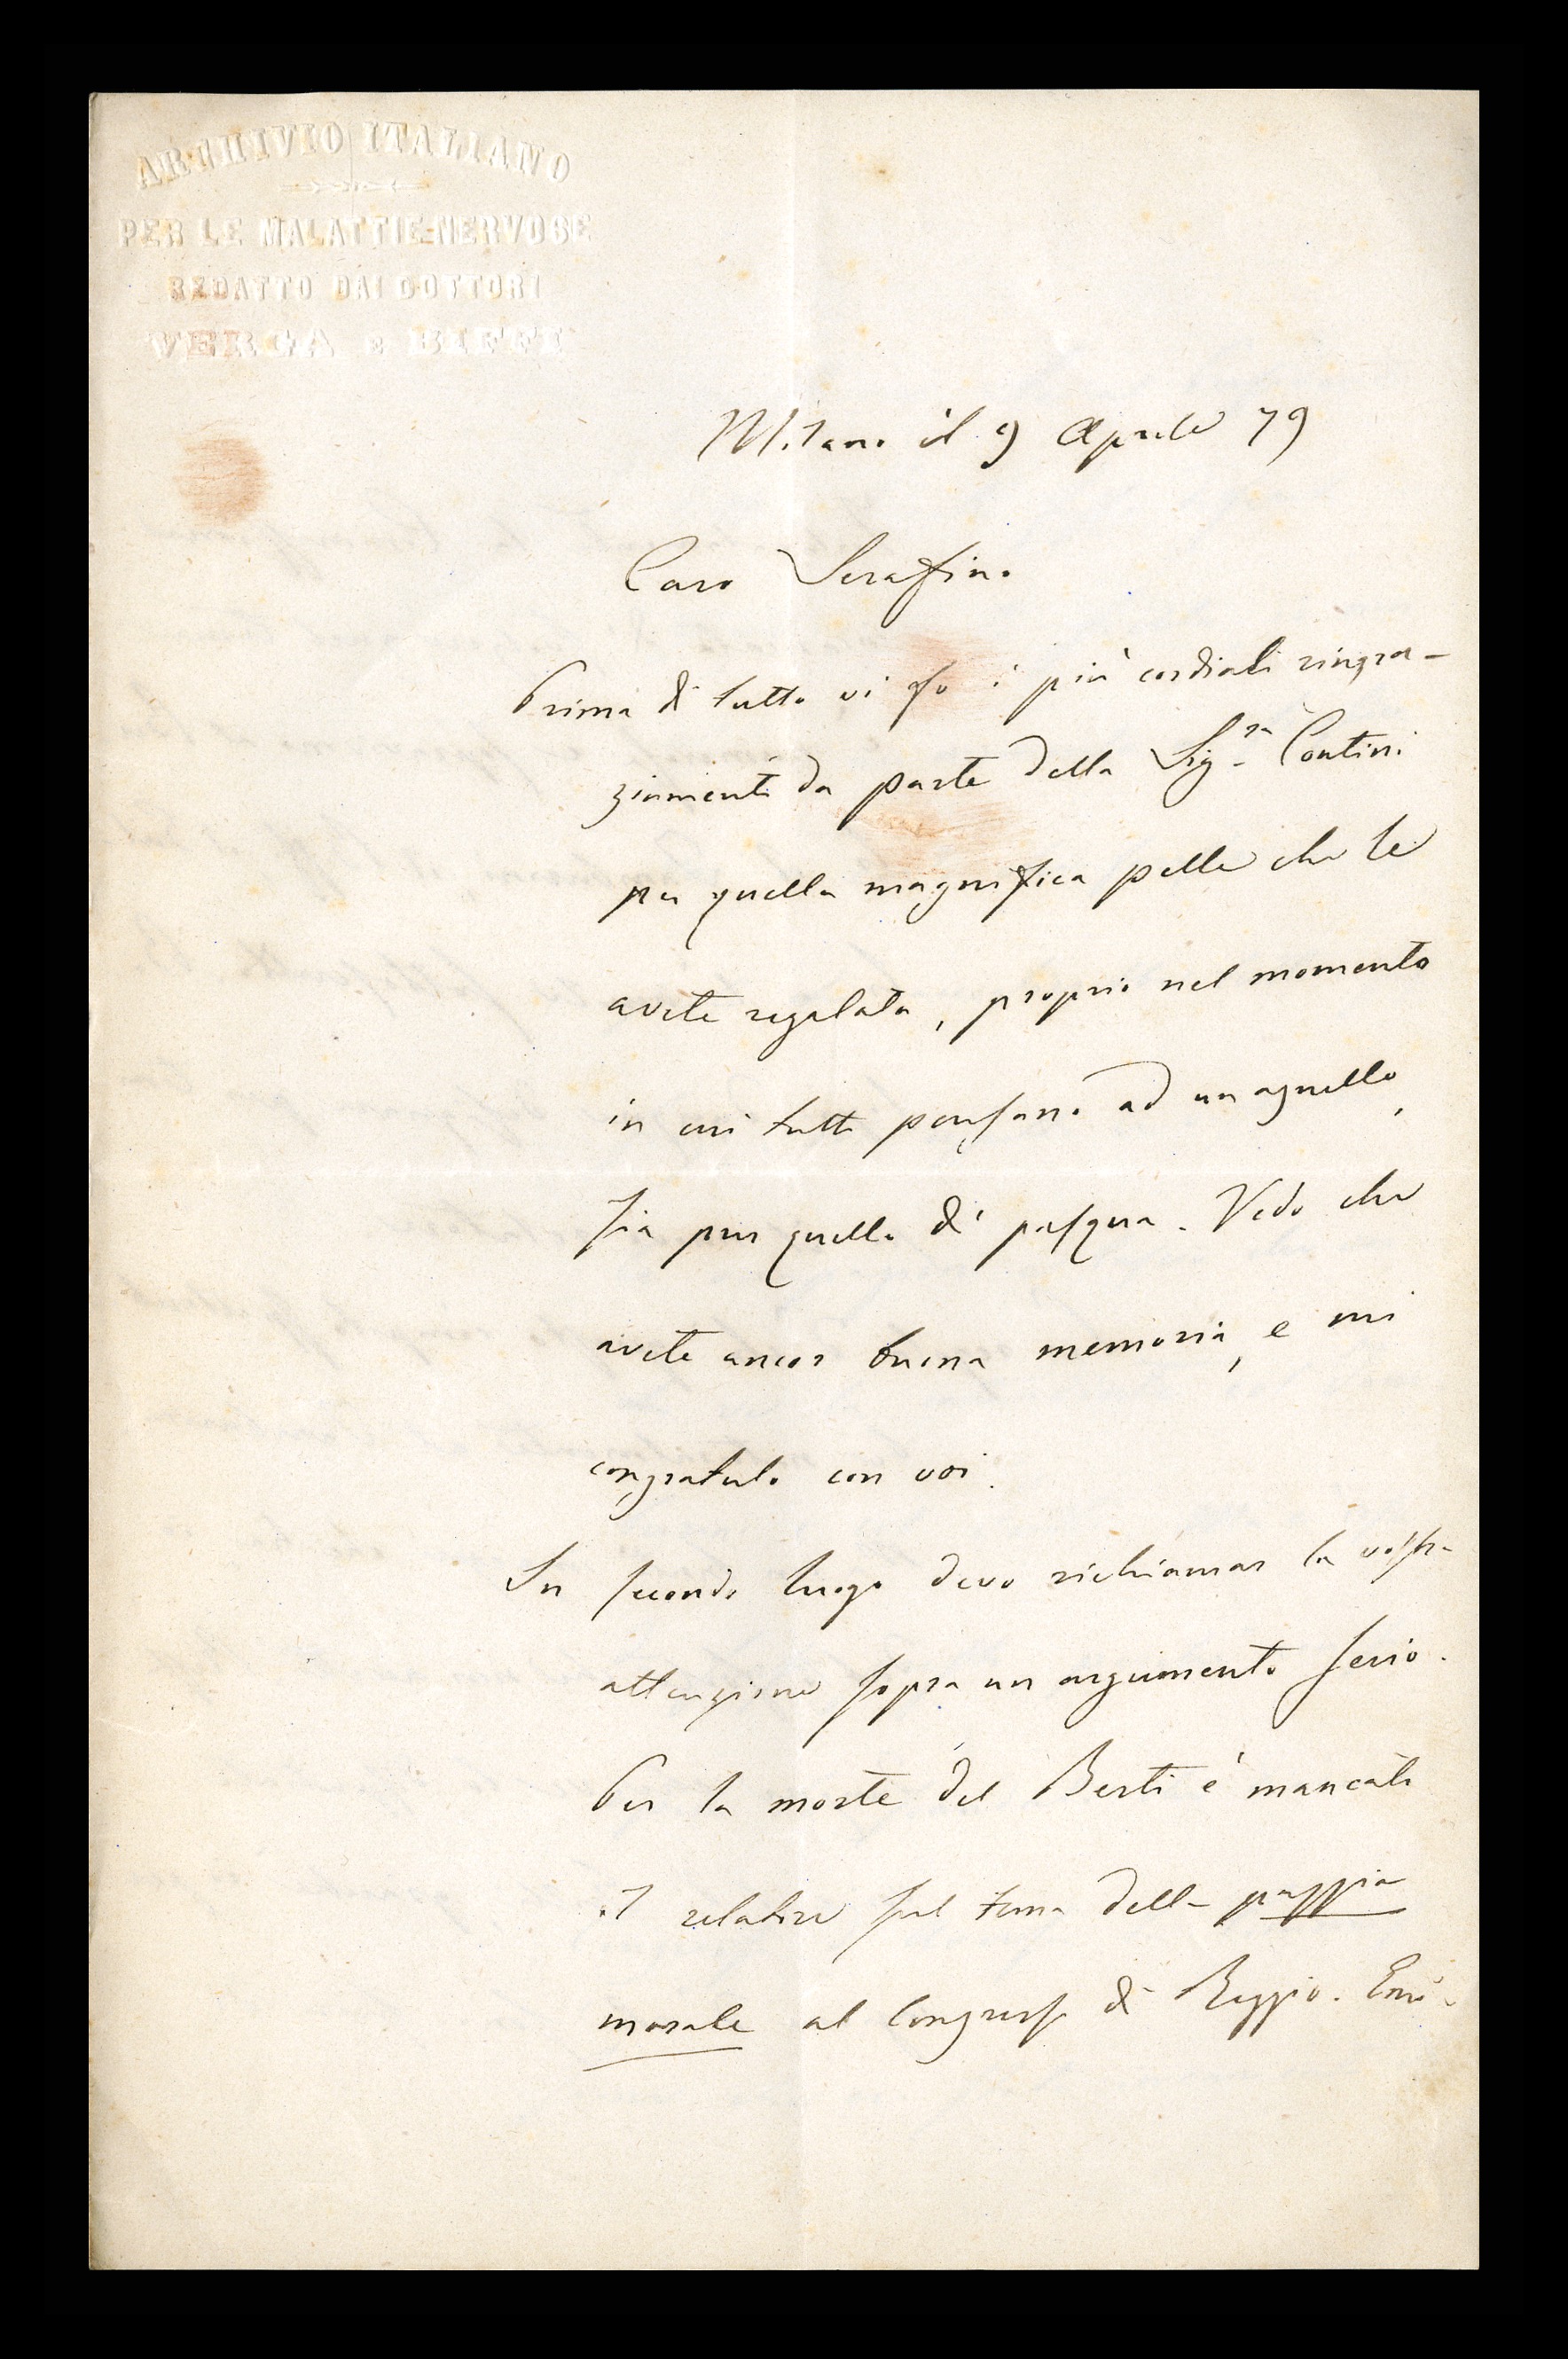 ARCHIVIO ITALIANO
PER LE MALATTIE NERVOSE
REDATTO DAI DOTTORI
VERGA E BIFFI
Milano il 9 Aprile 79
Caro Serafino
Prima di tutto vi fo i più cordiali ringra-
ziamenti da parte della Sig.ra Contini
per quella magnifica pelle che le
avete regalata, proprio nel momento
in cui tutti pensano ad un agnello,
sia pur quello di pasqua. Vedo che
avete ancor buona memoria, e mi
congratulo con voi.
In secondo luogo devo richiamar la vostra
attenzione sopra un argumento serio.
Per la morte del Berti è mancato
il relatore sul tema della pazzia
morale al Congresso di Reggio. Emi-